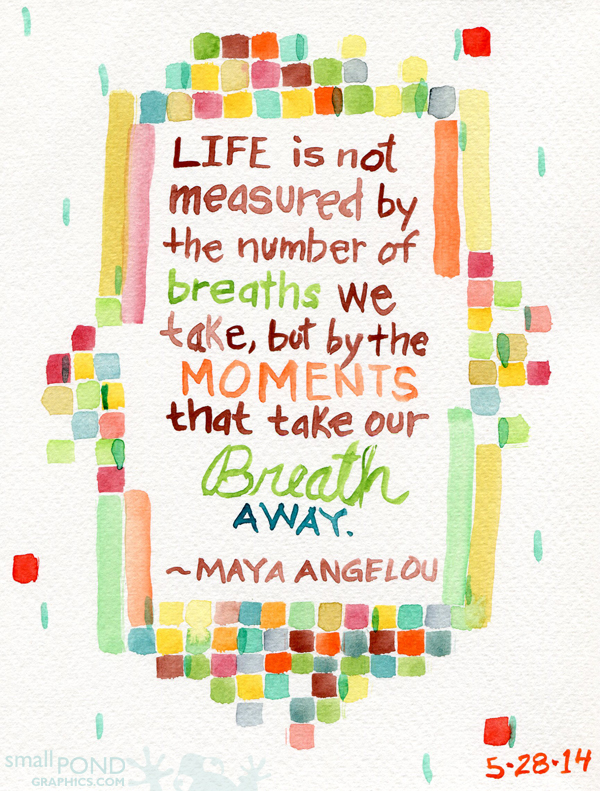 LIFE is not
measured by
the number of
breaths we
take, but by the
MOMENTS
that take our
Breath
AWAY.
~MAYA ANGELOU
small POND
GRAPHICS.COM
5·28·14